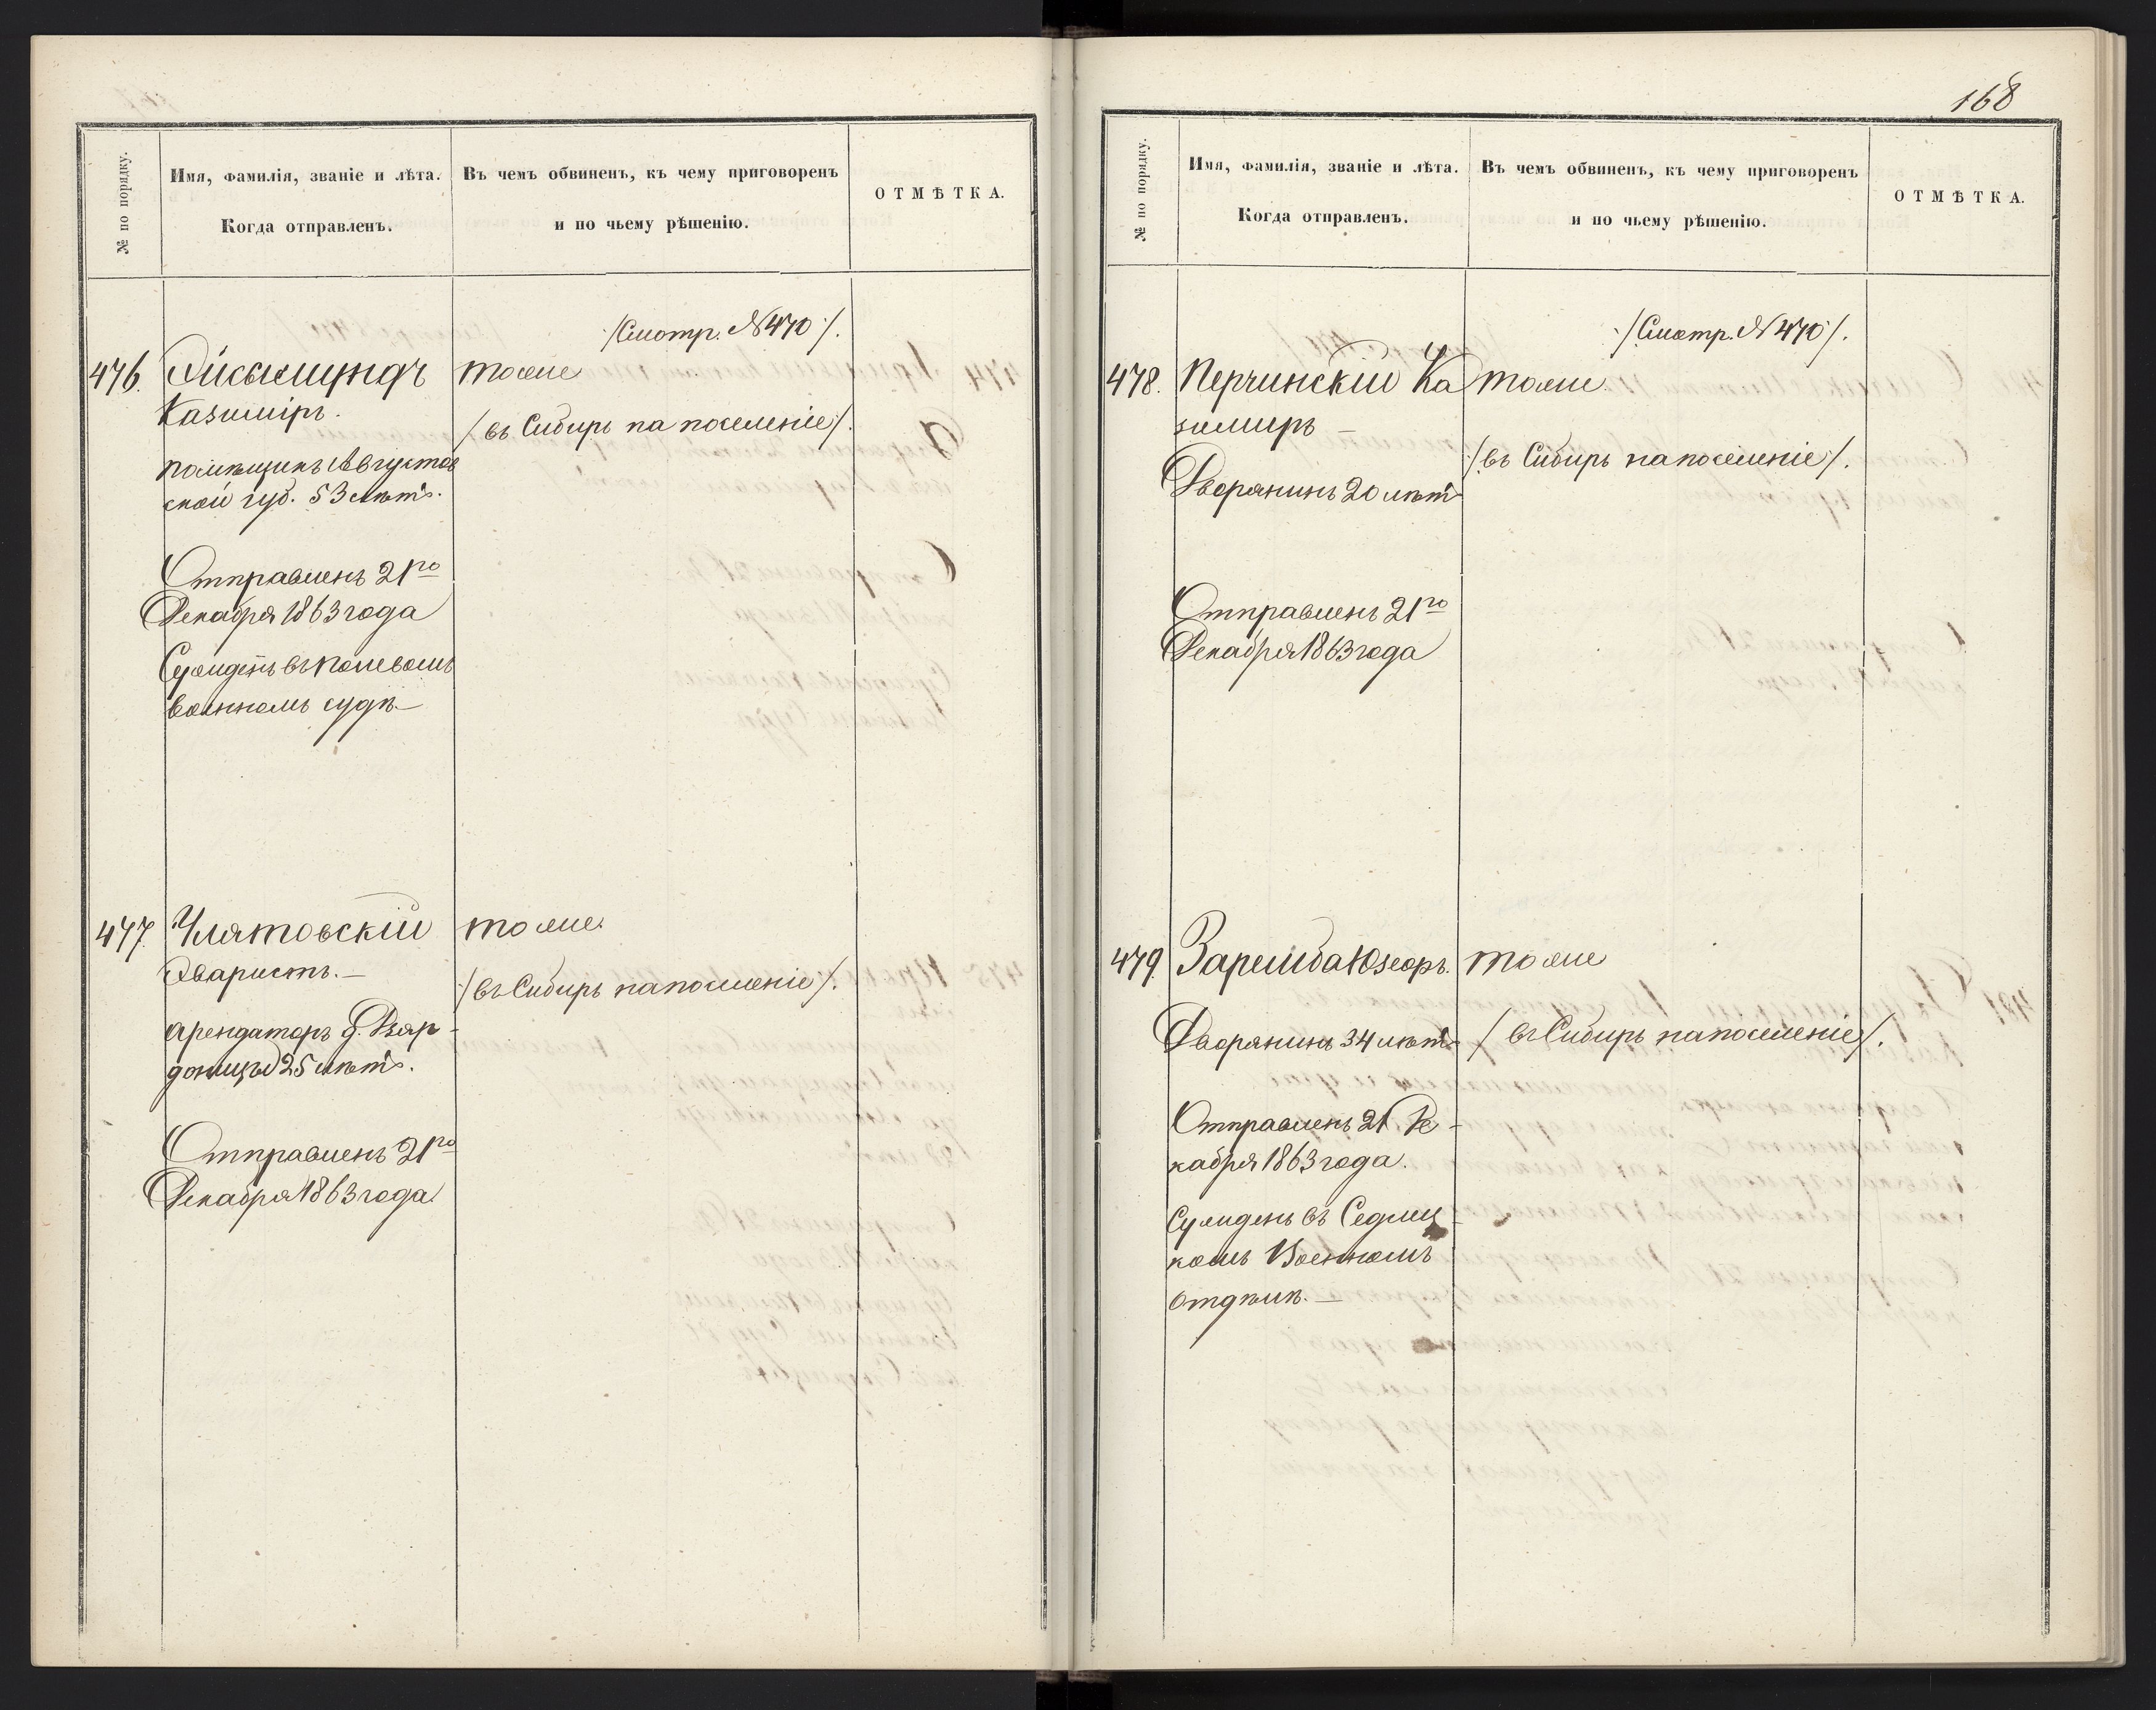 № по порядку.
Имя, фамилія, званіе и лѣта.
Когда отправленъ.
Въ чемъ обвиненъ, къ чему приговоренъ
и по чьему рѣшенію.
ОТМѢТКА.
/Смотр. №470/.
476.
тоже
Казиміръ.
/въ Сибирь на поселеніе/.
помѣщикъ Августов
ской губ. 53 лѣтъ.
Отправленъ 21го
Декабря 1863 года
Сужденъ въ полевомъ
военномъ судѣ.—
477.
тоже.
Эваристъ.—
/въ Сибирь на поселеніе/.
арендаторъ д.
25 лѣтъ.
Отправленъ 21го
Декабря 1863 года
168
№ по порядку.
Имя, фамилія, званіе и лѣта.
Когда отправленъ.
Въ чемъ обвиненъ, къ чему приговоренъ
и по чьему рѣшенію.
ОТМѢТКА.
/Смотр. №470/.
478. Перчинскій Ка
тоже.
зимиръ —
/въ Сибирь на поселеніе/.
Дворянинъ 20 лѣтъ
Отправленъ 21го
Декабря 1863 года
479. Заремба Юзефъ.
тоже
Дворянинъ 34 лѣтъ
/въ Сибирь на поселеніе/.
Отправленъ 21 Де-
кабря 1863 года.
Сужденъ въ Седлец-
комъ Военномъ
отдѣлѣ.—